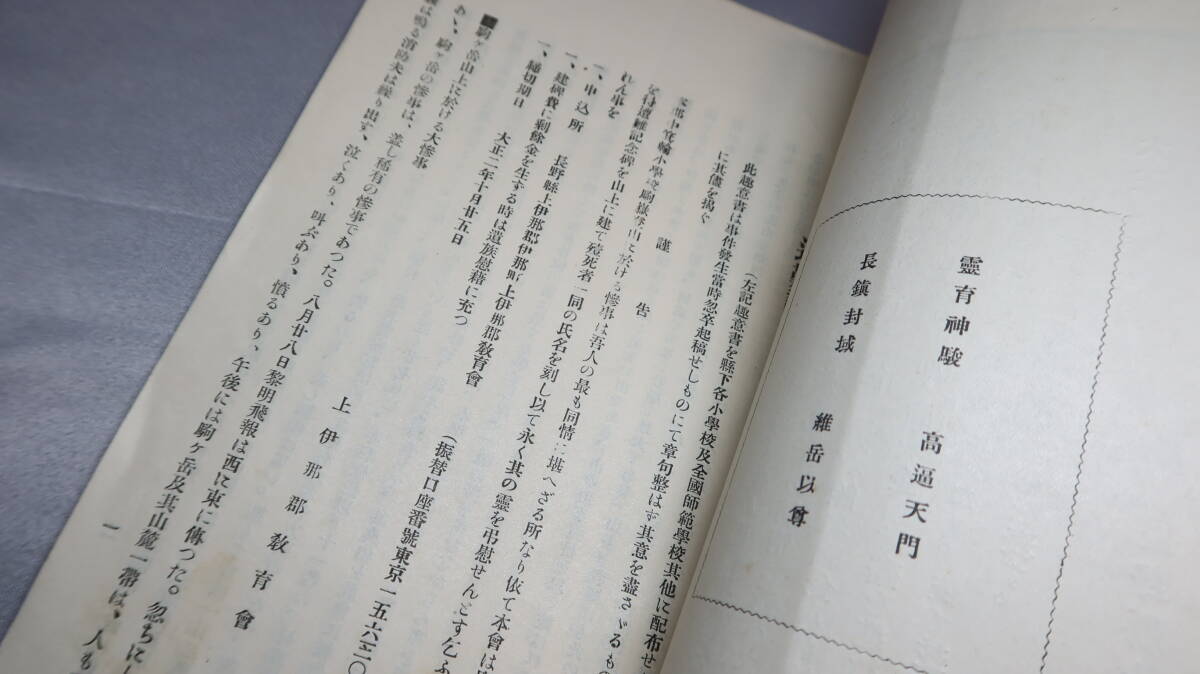 靈育神駿　高逼天門
長鎭封域　維岳以尊
(左記趣意書を縣下各小學校及全國師範學校其他に配布せ
此趣意書は事件發生當時忽卒起稿せしものにて章句整はず其意を盡さゞるもの
に其儘を揭ぐ
謹告
郡中箕輪小學校駒嶽登山に於ける慘事は吾人の最も同情に堪へざる所なり依て本會は
遭難記念碑を山上に建て殪死者一同の氏名を刻し以て永く其の靈を弔慰せんとす乞ふ
れん事を
一、申込所　長野縣上伊那郡伊那町上伊那郡敎育會　(振替口座番號東京一五六二〇
一、建碑費に剩餘金を生ずる時は遺族慰藉に充つ
一、締切期日　大正二年十月廿五日
上伊那郡敎育會
駒ヶ岳山上に於ける大慘事
あゝ、駒ヶ岳の慘事は、蓋し稀有の慘事であつた。八月廿八日黎明飛報は西に東に傳つた。忽ちにし
は鳴る消防夫は繰り出す、泣くあり、叫ぶあり、憤るあり、午後には駒ヶ岳及其山麓一帶は、人も
一